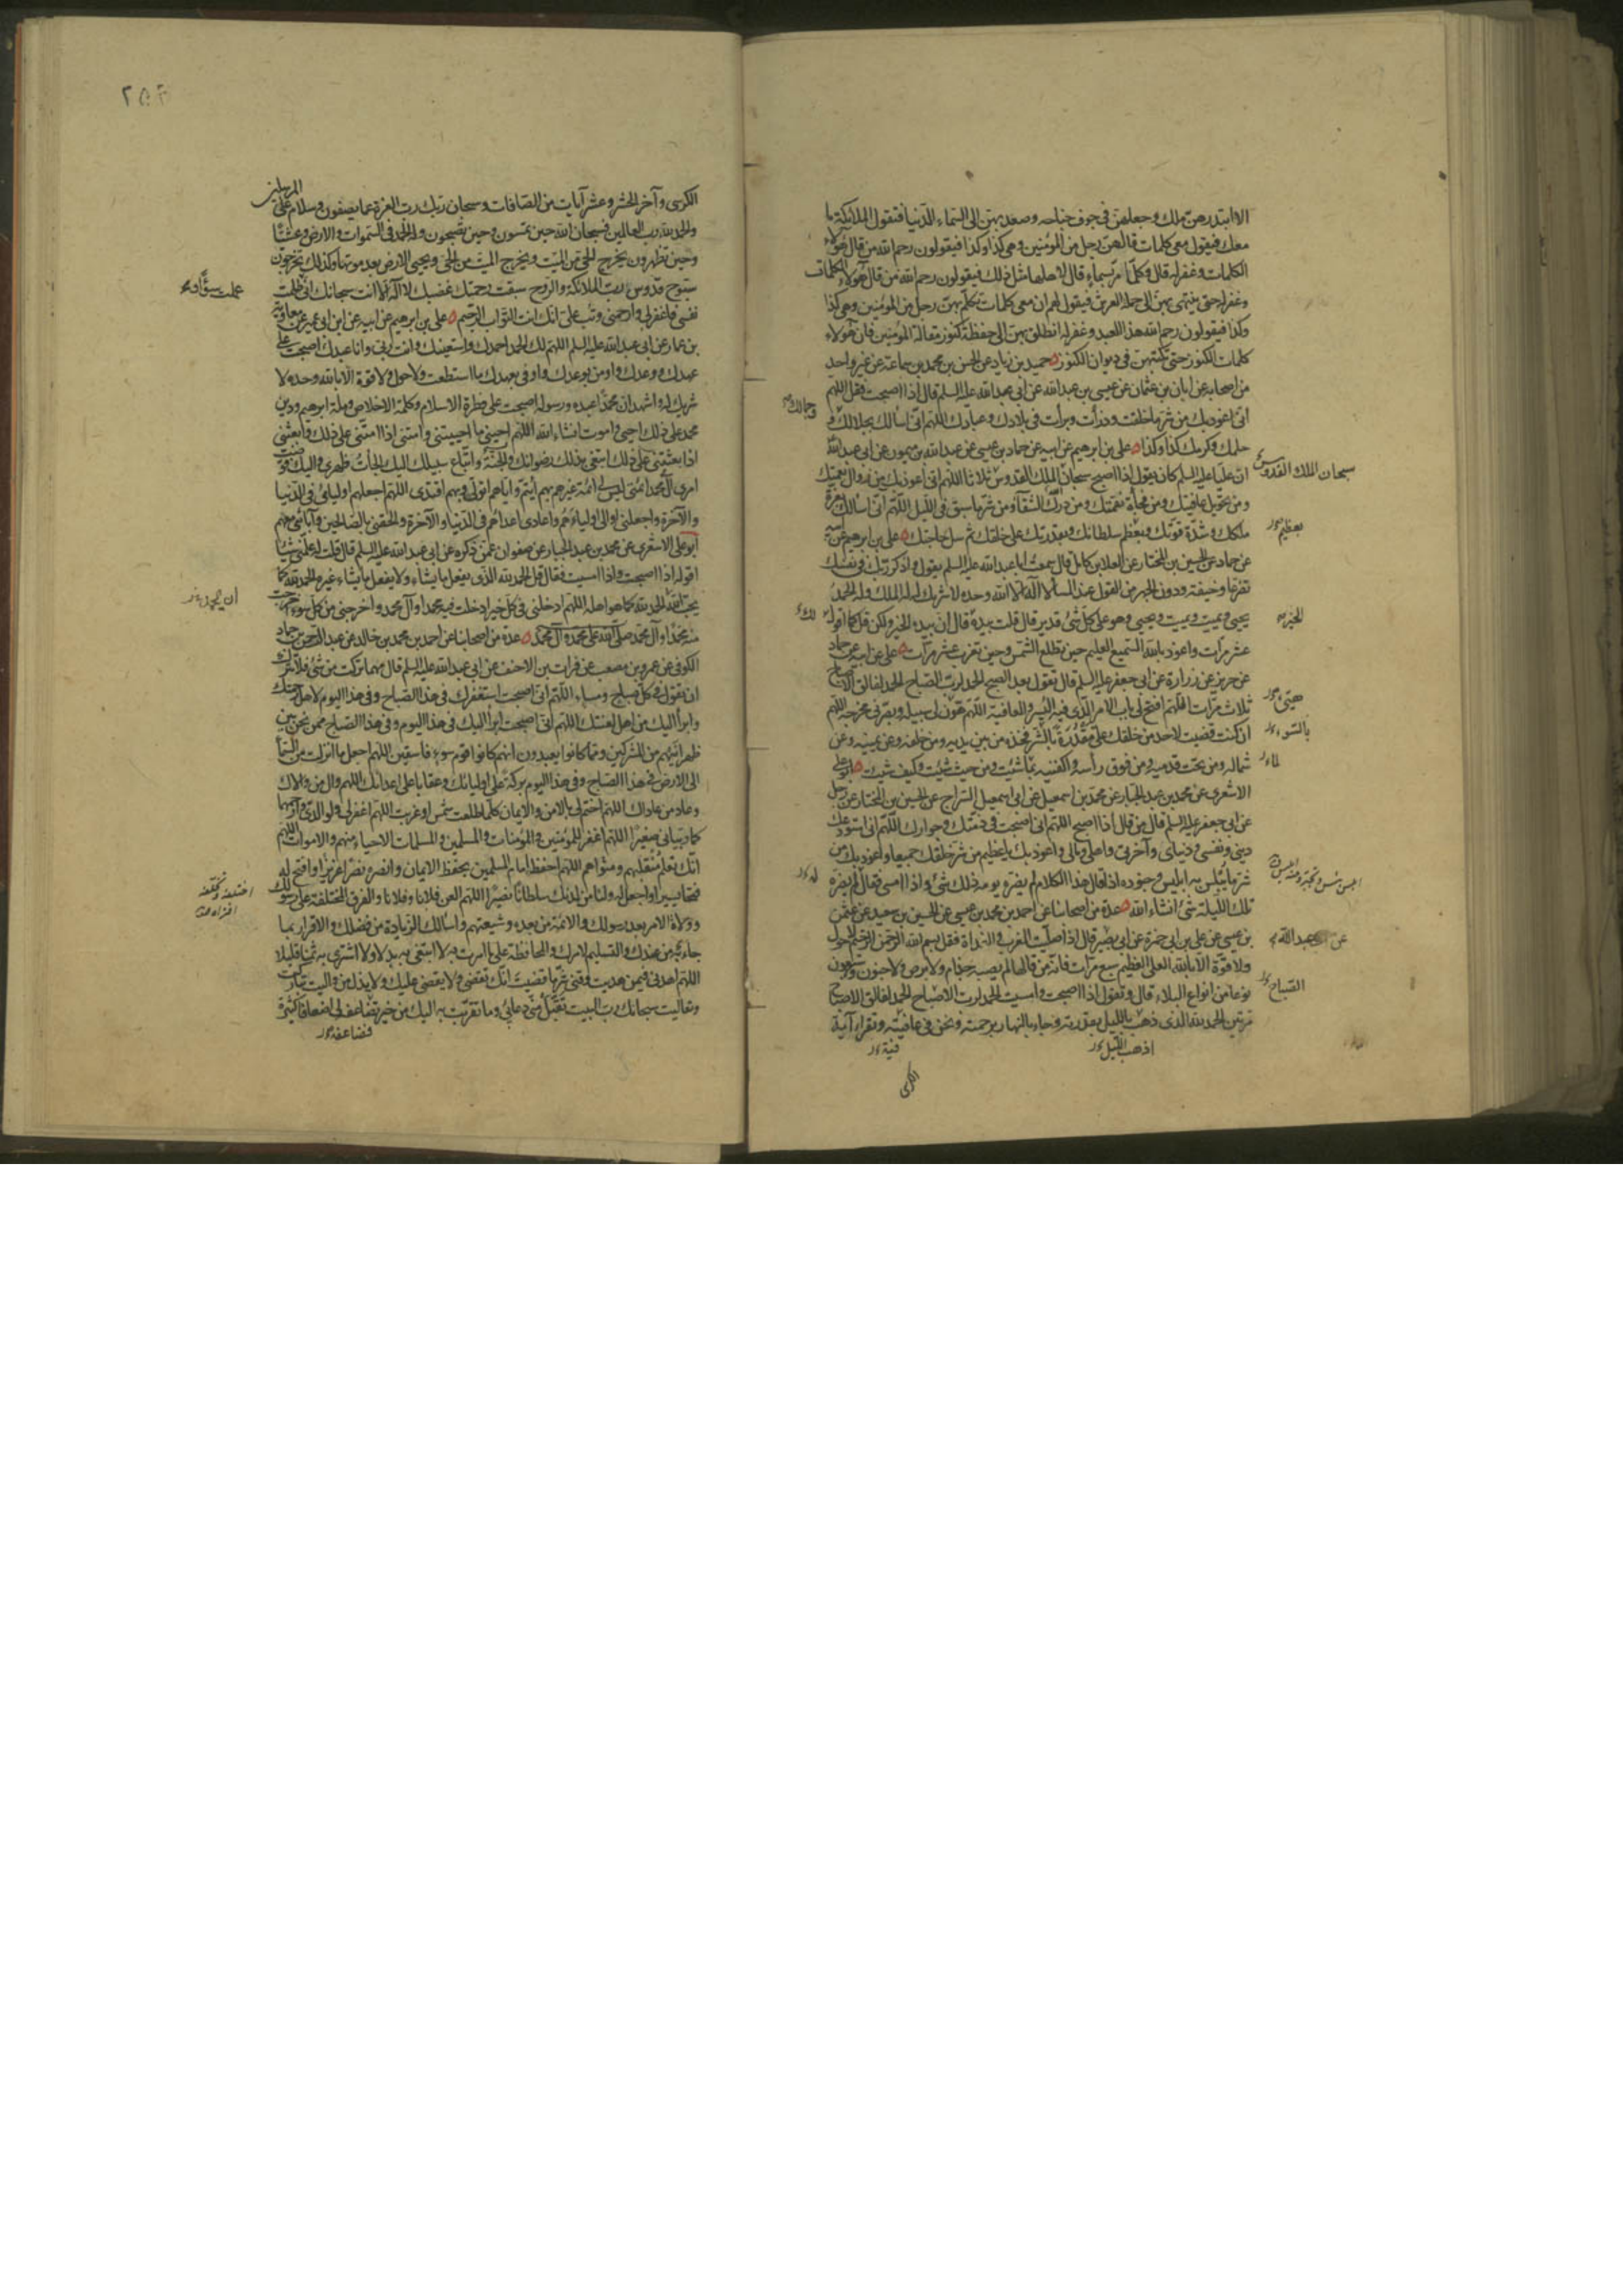 الا ابتدرهن ملك وجعلهن في جوف جناحه وصعد بهن الى السماء الدنيا فتقول الملائكة ما
معك فيقول معى كلمات قالهن رجل من المؤمنين وهى كذا وكذا فيقولون رحم الله من قال هؤلاء
الكلمات وغفر له قال وكلما مر بسماء قال لاهلها مثل ذلك فيقولون رحم الله من قال هؤلاء الكلمات
وغفر له حتى ينتهى بهن الى حملة العرش فيقول لهم ان معى كلمات تكلم بهن رجل من المؤمنين وهى كذا
وكذا فيقولون رحم الله هذا العبد وغفر له انطلق بهن الى حفظة كنوز مقالة المؤمنين فان هؤلاء
كلمات الكنوز حتى تكتبهن في ديوان الكنوز حميد بن زياد عن الحسن بن محمد بن سماعة عن غير واحد
من اصحابه عن ابان بن عثمان عن عيسى بن عبد الله عن ابى عبد الله عليه السلم قال اذا اصبحت فقل اللهم
انى اعوذ بك من شر ما خلقت وذرأت وبرأت في بلادك وعبادك اللهم انى اسألك بجلالك و
وجمالك
حلمك وكرمك كذا وكذا على بن ابرهيم عن ابيه عن حماد بن عيسى عن عبد الله بن ميمون عن ابى عبد الله
ان عليا عليه السلم كان يقول اذا اصبح سبحان الملك القدوس ثلاثا اللهم انى اعوذ بك من زوال نعمتك
سبحان الملك القدوس
ومن تحويل عافيتك ومن فجأة نقمتك ومن درك الشقاء ومن شر ما سبق في الليل اللهم انى اسألك بعزة
ملكك وشدة قوتك وبعظم سلطانك وبقدرتك على خلقك ثم سل حاجتك على بن ابرهيم عن ابيه
بعظيم
عن حماد عن الحسين بن المختار عن العلا بن كامل قال سمعت ابا عبد الله عليه السلم يقول واذكر ربك في نفسك
تضرعا وخيفة ودون الجهر من القول عند المسا لا اله الا الله وحده لا شريك له له الملك وله الحمد
يحيى ويميت ويميت ويحيى وهو على كل شئ قدير قال قلت بيده قال ان بيده الخير ولكن قل كما اقول
الخير
لك
عشر مرات واعوذ بالله السميع العليم حين تطلع الشمس وحين تغرب عشر مرات على عن ابيه عن حماد
عن حريز عن زرارة عن ابى جعفر عليه السلم قال تقول بعد الصبح الحمد لرب الصباح الحمد لفالق الاصباح
ثلاث مرات اللهم افتح لى باب الامر الذى فيه اليسر والعافية اللهم هون لى سبيله وبصرنى مخرجه اللهم
هيئ
ان كنت قضيت لاحد من خلقك على مقدرة بالشر فخذه من بين يديه ومن خلفه وعن يمينه وعن
بالسوء
شماله ومن تحت قدميه ومن فوق رأسه واكفنيه بما شئت ومن حيث شئت وكيف شئت ابو على
الاشعرى عن محمد بن عبد الجبار عن محمد بن اسمعيل عن ابى اسمعيل السراج عن الحسين بن المختار عن رجل
عن ابى جعفر عليه السلم قال من قال اذا اصبح اللهم انى اصبحت في ذمتك وجوارك اللهم انى استودعك
دينى ونفسى ودنياى وآخرتى واهلى ومالى واعوذ بك يا عظيم من شر خلقك جميعا واعوذ بك من
شر ما يبلس به ابليس وجنوده اذا قال هذا الكلام لم يضره يومه ذلك شئ واذا امسى فقاله لم يضره
تلك الليلة شئ انشاء الله عدة من اصحابنا عن احمد بن محمد بن عيسى عن الحسين بن سعيد عن عثمن
بن عيسى عن على بن ابى حمزة عن ابى بصير قال اذا صليت المغرب والغداة فقل بسم الله الرحمن الرحيم لا حول
عن عبد الله
ولا قوة الا بالله العلى العظيم سبع مرات فانه من قالها لم يصبه جذام ولا برص ولا جنون وسبعون
نوعا من انواع البلاء قال وتقول اذا اصبحت وامسيت الحمد لرب الاصباح الحمد لفالق الاصباح
الصباح
مرتين الحمد لله الذى ذهب بالليل بقدرته وجاء بالنهار برحمته ونحن في عافيته وتقرأ آية
اذهب الليل
الكرسى
٢٥٤
الكرسى وآخر الحشر وعشر آيات من الصافات وسبحان ربك رب العزة عما يصفون وسلام على المرسلين
والحمد لله رب العالمين فسبحان الله حين تمسون وحين تصبحون وله الحمد في السموات والارض وعشيا
وحين تظهرون يخرج الحى من الميت ويخرج الميت من الحى ويحيى الارض بعد موتها وكذلك تخرجون
سبوح قدوس رب الملائكة والروح سبقت رحمتك غضبك لا اله الا انت سبحانك انى ظلمت
نفسى فاغفر لى وارحمنى وتب على انك انت التواب الرحيم على بن ابرهيم عن ابيه عن ابن ابى عمير عن معاوية
بن عمار عن ابى عبد الله عليه السلم اللهم لك الحمد احمدك واستعينك وانت ربى وانا عبدك اصبحت على
عهدك ووعدك واومن بوعدك واوفى بعهدك ما استطعت ولا حول ولا قوة الا بالله وحده لا
شريك له واشهد ان محمدا عبده ورسوله اصبحت على فطرة الاسلام وكلمة الاخلاص وملة ابرهيم ودين
محمد على ذلك احيى واموت انشاء الله اللهم احينى ما احييتنى وامتنى اذا امتنى على ذلك وابعثنى
اذا بعثتنى على ذلك ابتغى بذلك رضوانك والجنة واتباع سبيلك اليك الجأت ظهرى واليك فوضت
امرى آل محمد ائمتى ليس لى ائمة غيرهم بهم ائتم واياهم اتولى وبهم اقتدى اللهم اجعلهم اوليائى في الدنيا
والآخرة واجعلنى اوالى اولياءهم واعادى اعداءهم في الدنيا والآخرة والحقنى بالصالحين وآبائى معهم
ابو على الاشعرى عن محمد بن عبد الجبار عن صفوان عمن ذكره عن ابى عبد الله عليه السلم قال قلت له علمنى شيئا
اقوله اذا اصبحت واذا امسيت فقال قل الحمد لله الذى يفعل ما يشاء ولا يفعل ما يشاء غيره الحمد لله كما
يحب الله الحمد لله كما هو اهله اللهم ادخلنى في كل خير ادخلت فيه محمدا وآل محمد واخرجنى من كل سوء اخرجت
منه محمدا وآل محمد صلى الله على محمد وآل محمد عدة من اصحابنا عن احمد بن محمد بن خالد عن عبد الرحمن بن حماد
الكوفى عن عمرو بن مصعب عن فرات بن الاحنف عن ابى عبد الله عليه السلم قال مهما تركت من شئ فلا تترك
ان تقول في كل صباح ومساء اللهم انى اصبحت استغفرك في هذا الصباح وفي هذا اليوم لاهل رحمتك
وابرأ اليك من اهل لعنتك اللهم انى اصبحت ابرأ اليك في هذا اليوم وفي هذا الصباح ممن نحن بين
ظهرانيهم من المشركين ومما كانوا يعبدون انهم كانوا قوم سوء فاسقين اللهم اجعل ما انزلت من السماء
الى الارض في هذا الصباح وفي هذا اليوم بركة على اوليائك وعقابا على اعدائك اللهم وال من والاك
وعاد من عاداك اللهم اختم لى بالامن والايمان كلما طلعت شمس او غربت اللهم اغفر لى ولوالدى وارحمهما
كما ربيانى صغيرا اللهم اغفر للمؤمنين والمؤمنات والمسلمين والمسلمات الاحياء منهم والاموات اللهم
انك تعلم منقلبهم ومثواهم اللهم احفظ امام المسلمين بحفظ الايمان وانصره نصرا عزيزا وافتح له
فتحا يسيرا واجعل له ولنا من لدنك سلطانا نصيرا اللهم العن فلانا وفلانا والفرق المختلفة على رسولك
وولاة الامر بعد رسولك والائمة من بعده وشيعتهم واسألك الزيادة من فضلك والاقرار بما
جاء به من عندك والتسليم لامرك والمحافظة على ما امرت به لا ابتغى به بدلا ولا اشترى به ثمنا قليلا
اللهم اهدنى فيمن هديت وقنى شر ما قضيت انك تقضى ولا يقضى عليك ولا يذل من واليت تباركت
وتعاليت سبحانك رب البيت تقبل منى دعائى وما تقربت به اليك من خير فضاعفه لى اضعافا كثيرة
فضاعفه